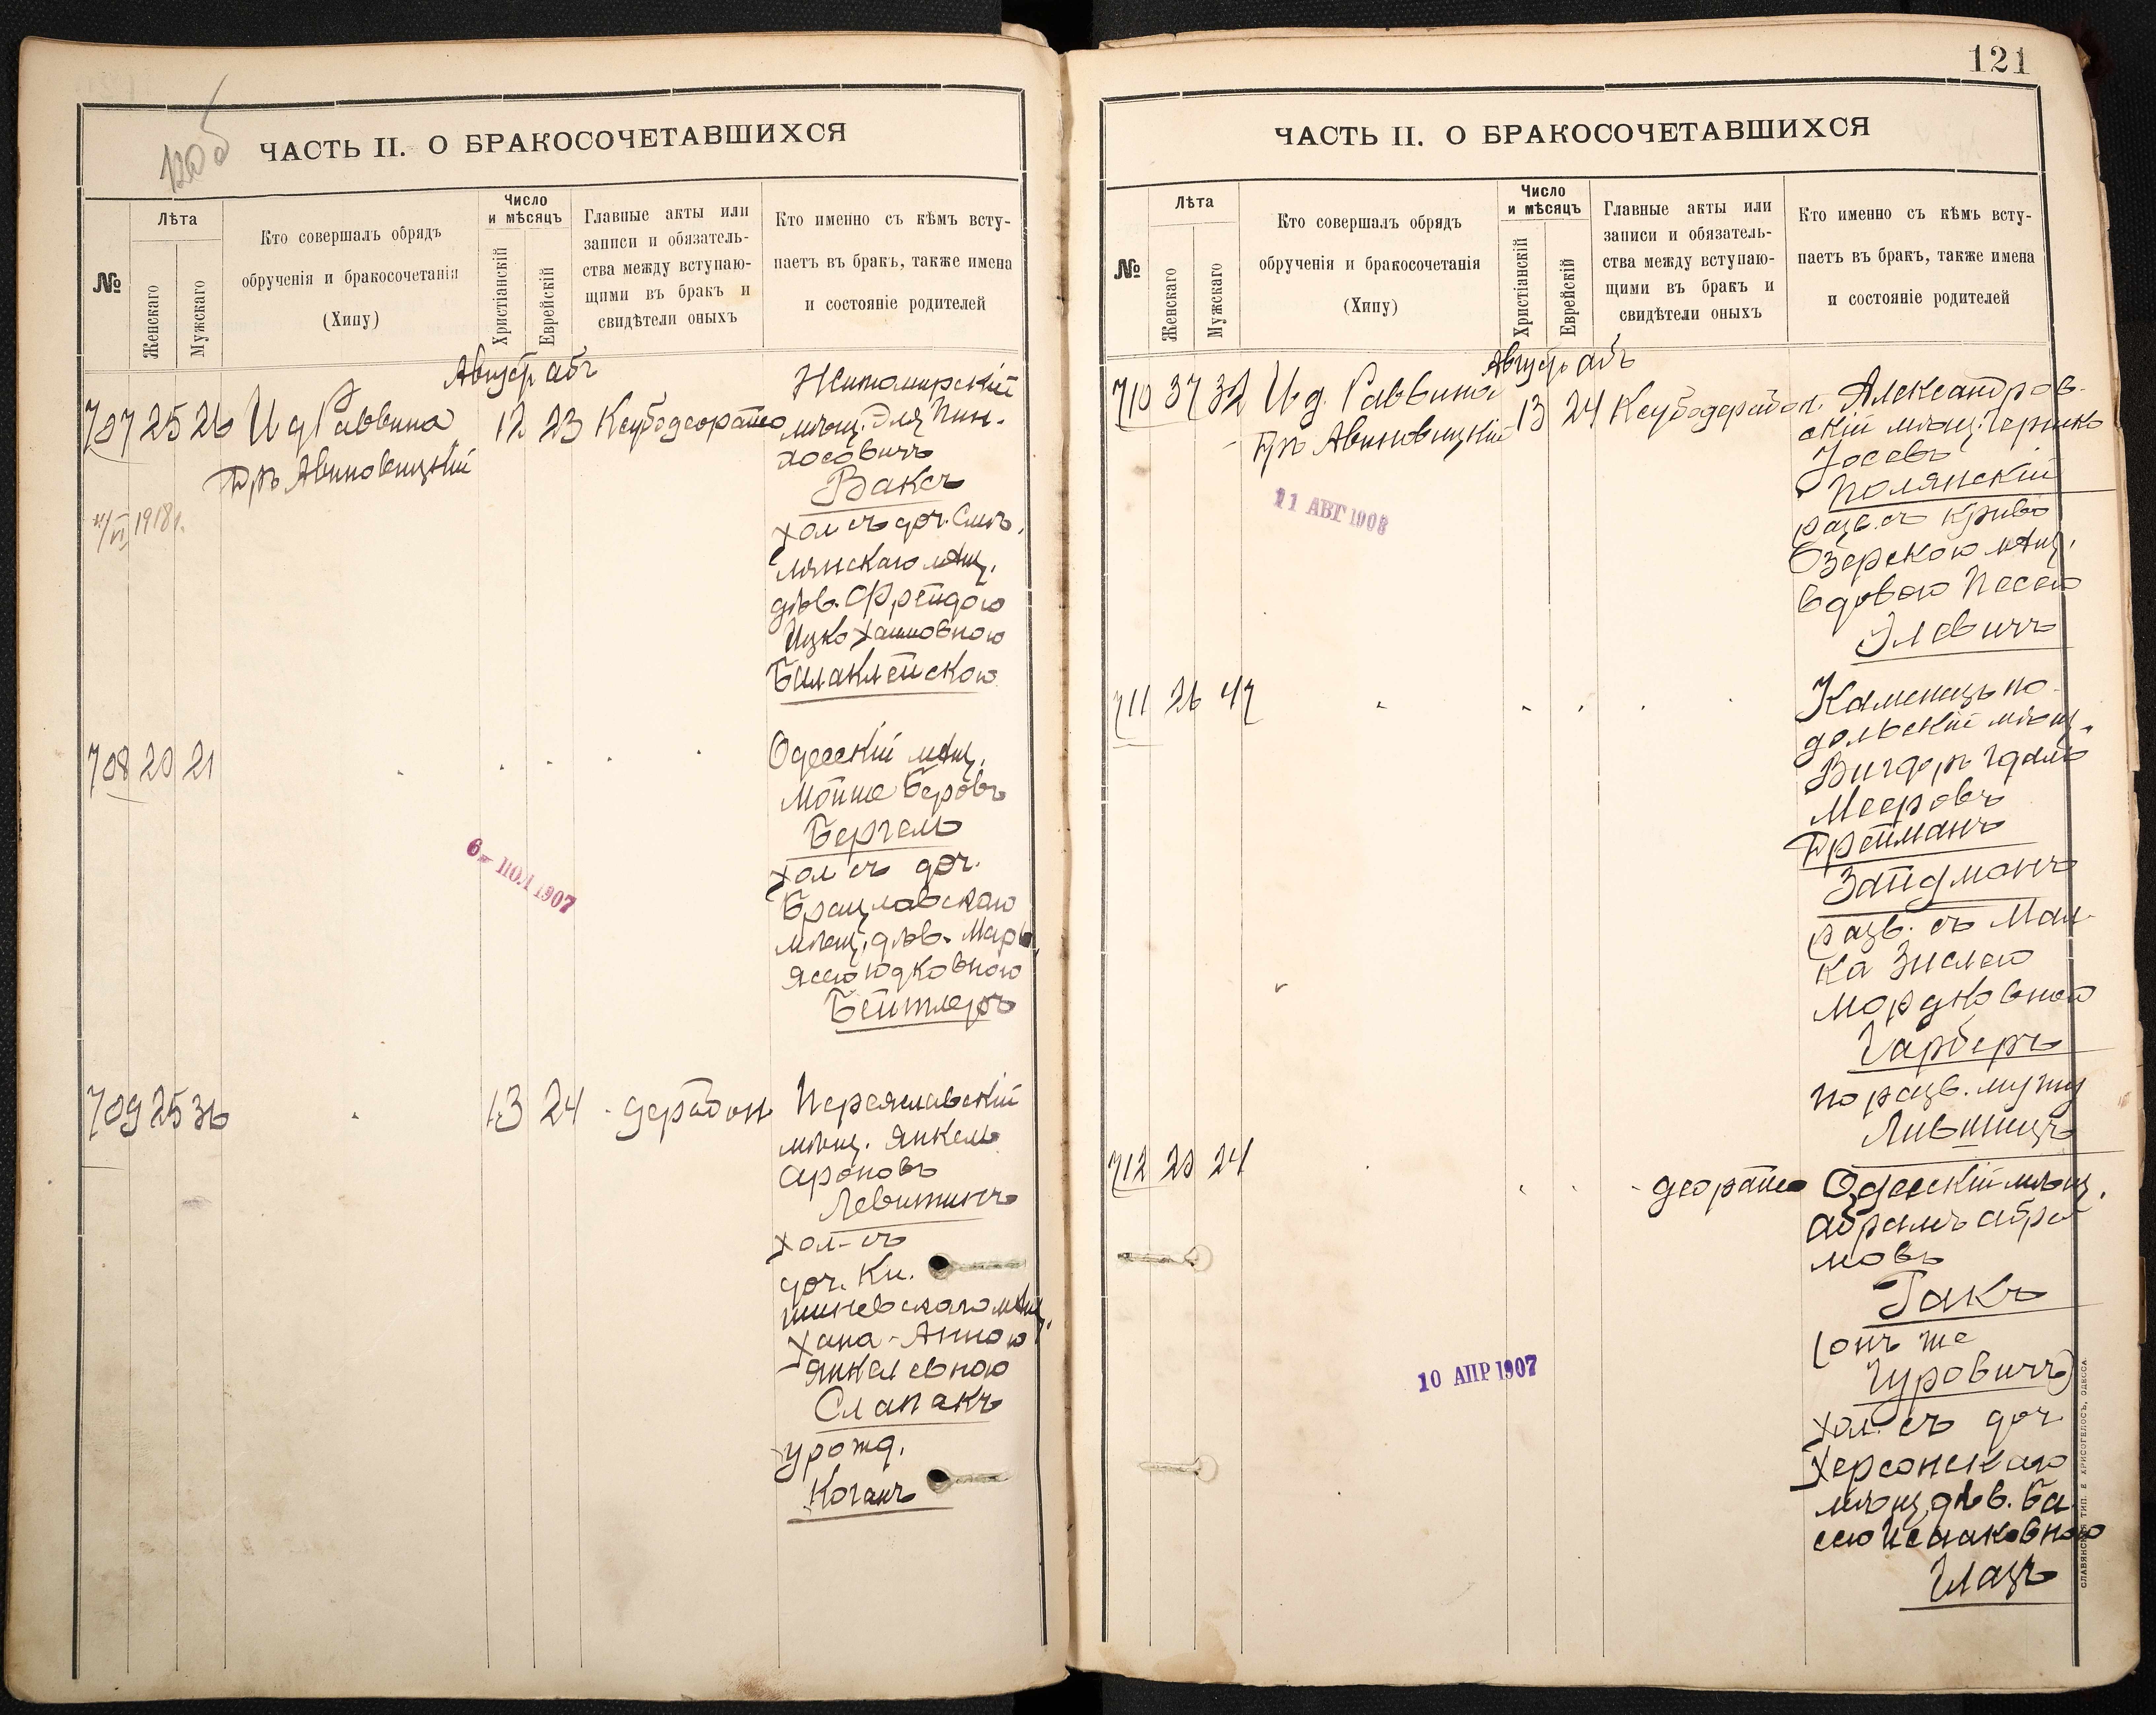 120б
ЧАСТЬ II. О БРАКОСОЧЕТАВШИХСЯ
№
Лѣта
Женскаго
Мужскаго
Кто совершалъ обрядъ
обрученія и бракосочетанія
(Хипу)
Число
и мѣсяцъ
Христіанскій
Еврейскій
Главные акты или
записи и обязатель-
ства между вступаю-
щими въ бракъ и
свидѣтели оныхъ
Кто именно съ кѣмъ всту-
паетъ въ бракъ, также имена
и состояніе родителей
Августъ абъ
707 25 26 И д Раввина 12 23
Авиновицкій
1918г.
Житомирскій
мѣщ. Эля Пин-
хосовичъ
Ваксъ
хол съ доч. Смѣ
лянскаго мѣщ.
дѣв. Фрейдою
Ицко Хаимовною
Балаклейскою
708 20 21
Одесскій мѣщ.
Мойше Беровъ
Бергель
хол съ доч.
Брацлавскаго
мѣщ. дѣв. Марь
ясею Юдковною
Бейтлеръ
6 - ІЮЛ 1907
709 25 36 13 24
Переяславскій
мѣщ. Янкель
Ароновъ
Левитинъ
хол-съ
доч. Ки.
шиневскаго мѣщ.
Хана-Анною
Янкелевною
Слапакъ
урожд.
Коганъ
121
ЧАСТЬ II. О БРАКОСОЧЕТАВШИХСЯ
№
Лѣта
Женскаго
Мужскаго
Кто совершалъ обрядъ
обрученія и бракосочетанія
(Хипу)
Число
и мѣсяцъ
Христіанскій
Еврейскій
Главные акты или
записи и обязатель-
ства между вступаю-
щими въ бракъ и
свидѣтели оныхъ
Кто именно съ кѣмъ всту-
паетъ въ бракъ, также имена
и состояніе родителей
Августъ абъ
710 37 32 И.д. Раввина 13 24
Авиновицкій
11 АВГ 1908
Александров-
скій мѣщ. Гершко
Іосевъ
Полянскій
разв. съ Криво
Озерскою мѣщ.
вдовою Песею
Элевичъ
711 26 47
Каменецъ по-
дольскій мѣщ.
Вигдоръ Гдаль
Мееровъ
Фрейманъ
Зайдманъ
разв. съ Мал-
ка Зислею
Мордковною
Гарберъ
по разв. мужу
Лившицъ
712 20 24
Одесскій мѣщ.
Абрамъ Абра
мовъ
Гакъ
(онъ же
Гуровичъ)
хол. съ доч
Херсонскаго
мѣщ дѣв. Ба
сею Исааковною
Глазъ
10 АПР 1907
СЛАВЯНСКАЯ ТИП. Е ХРИСОГЕЛОСЪ, ОДЕССА.